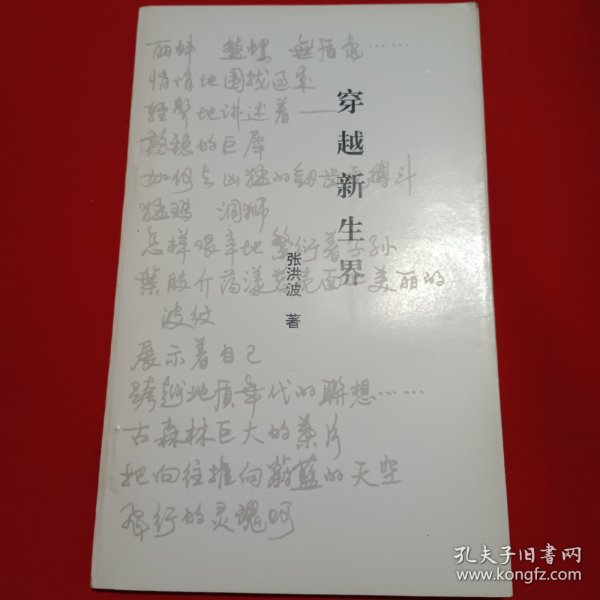 丽蚌 螯蝶 無盾龟……
悄悄地围拢过来
轻声地讲述着——
憨稳的巨犀
如何与凶猛的剑齿虎搏斗
猛犸 洞狮
怎样艰辛地繁衍着子孙
葉肢介荡漾着壳面上美丽的
波纹
展示着自己
跨越地质年代的聯想……
古森林巨大的葉片
把向往推向蔚蓝的天空
飛行的灵魂呵
穿越新生界
张洪波 著
孔夫子旧书网
www.kongfz.com